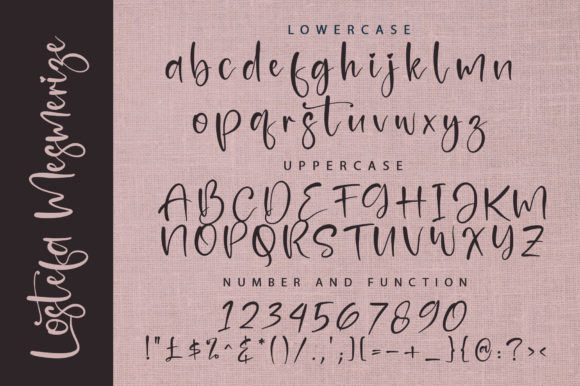 Lostefa Mesmerize
LOWERCASE
abcdefghijklmn
opqrstuvwxyz
UPPERCASE
ABCDEFGHIJKLM
NOPQRSTUVWXYZ
NUMBER AND FUNCTION
1234567890
!"£$%^&*()/.,';][=-+_}{@:?><